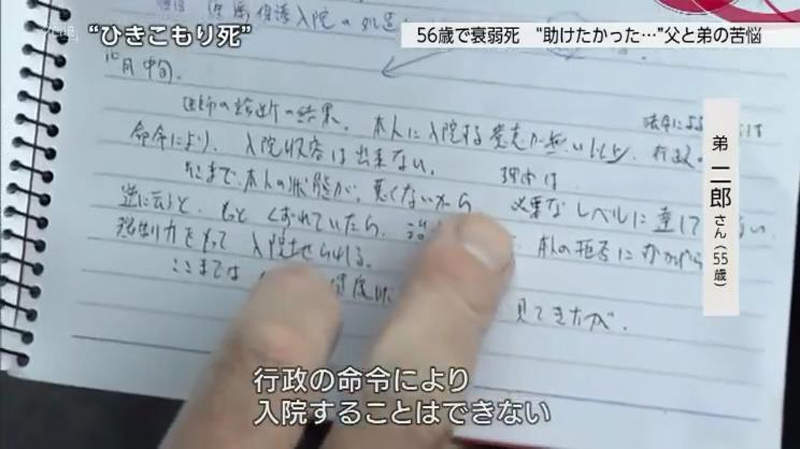 “ひきこもり死”
56歳で衰弱死 “助けたかった…”父と弟の苦悩
入院の処置
10月中旬。
医師の診断の結果、本人に入院する意志が無い
命令により、入院収容は出来ない。
そこまで、本人の状態が、悪くないから 必要なレベルに達して ない。
逆に言うと、もっと くずれていたら、 本人の拒否に かかわらず
強制力をもって 入院させられる。
ここまでは 見てきたが、
弟 二郎さん(55歳)
行政の命令により
入院することはできない